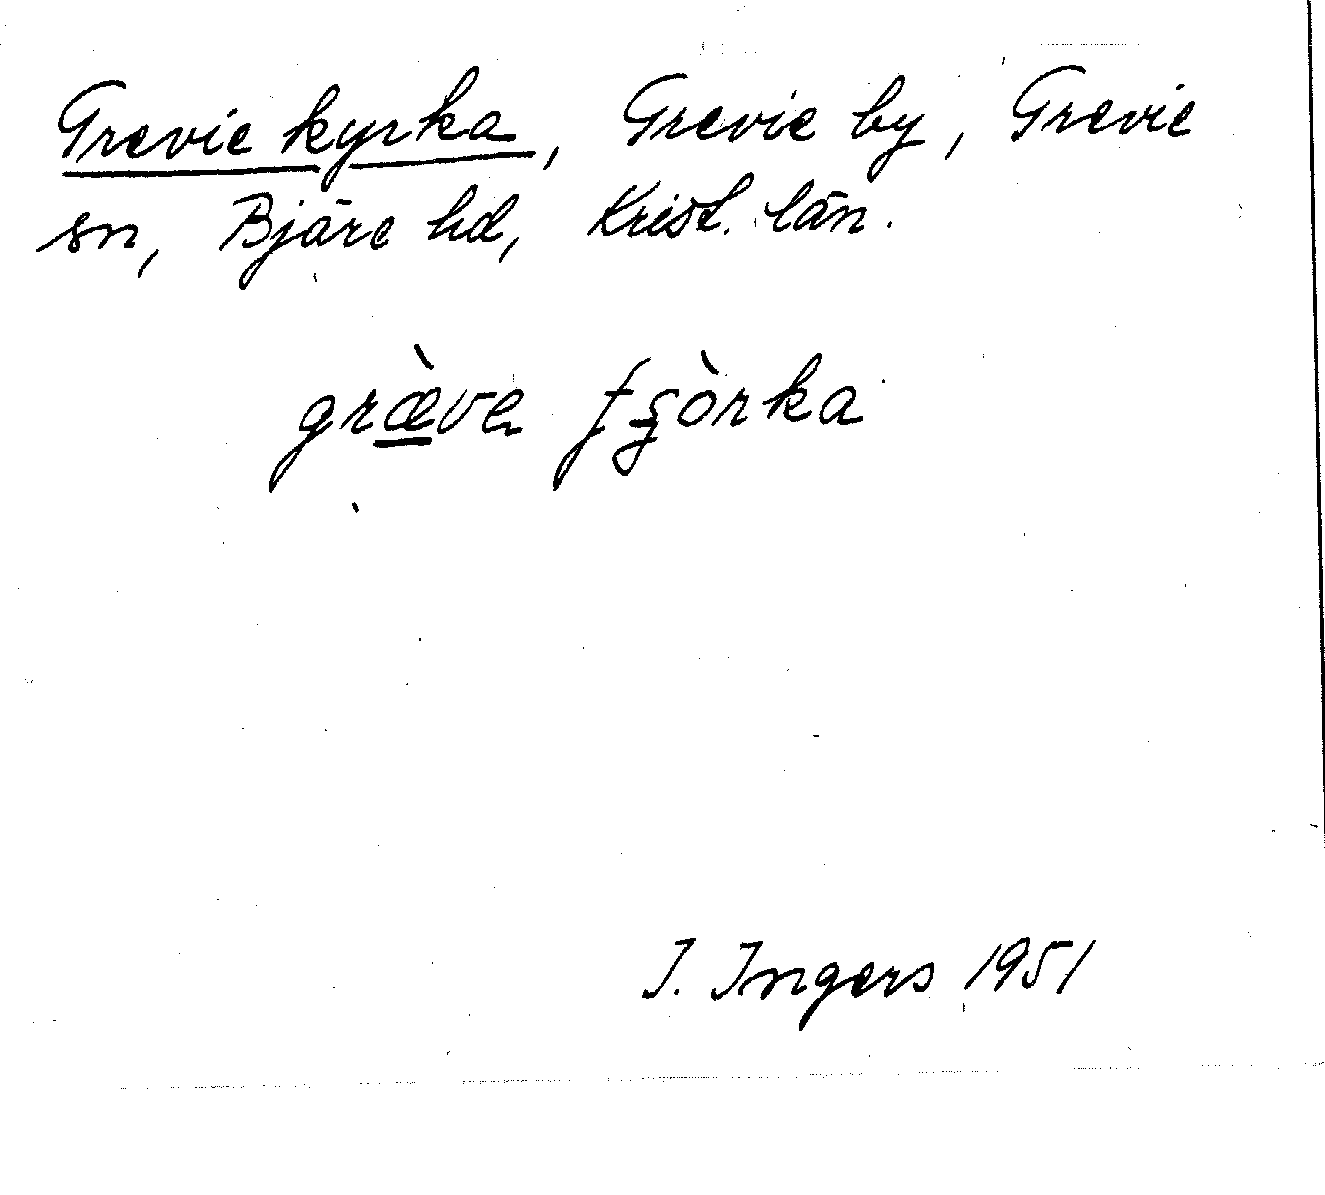 Grevie kyrka, Grevie by, Grevie
sn, Bjäre hd, Krist. län.
græ̀ve
I. Ingers 1951